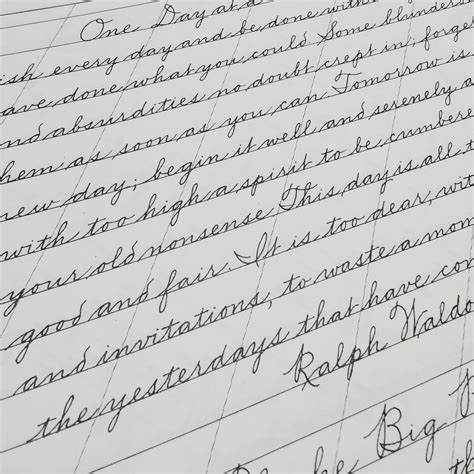 One Day at a
ish every day and be done with
ave done what you could Some blunders
nd absurdities no doubt crept in, forge
hem as soon as you can Tomorrow is
new day; begin it well and serenely a
with too high a spirit to be cumbere
your old nonsense. This day is all t
good and fair. It is too dear, wit
and invitations, to waste a mom
the yesterdays that have con
Ralph Waldo
Big